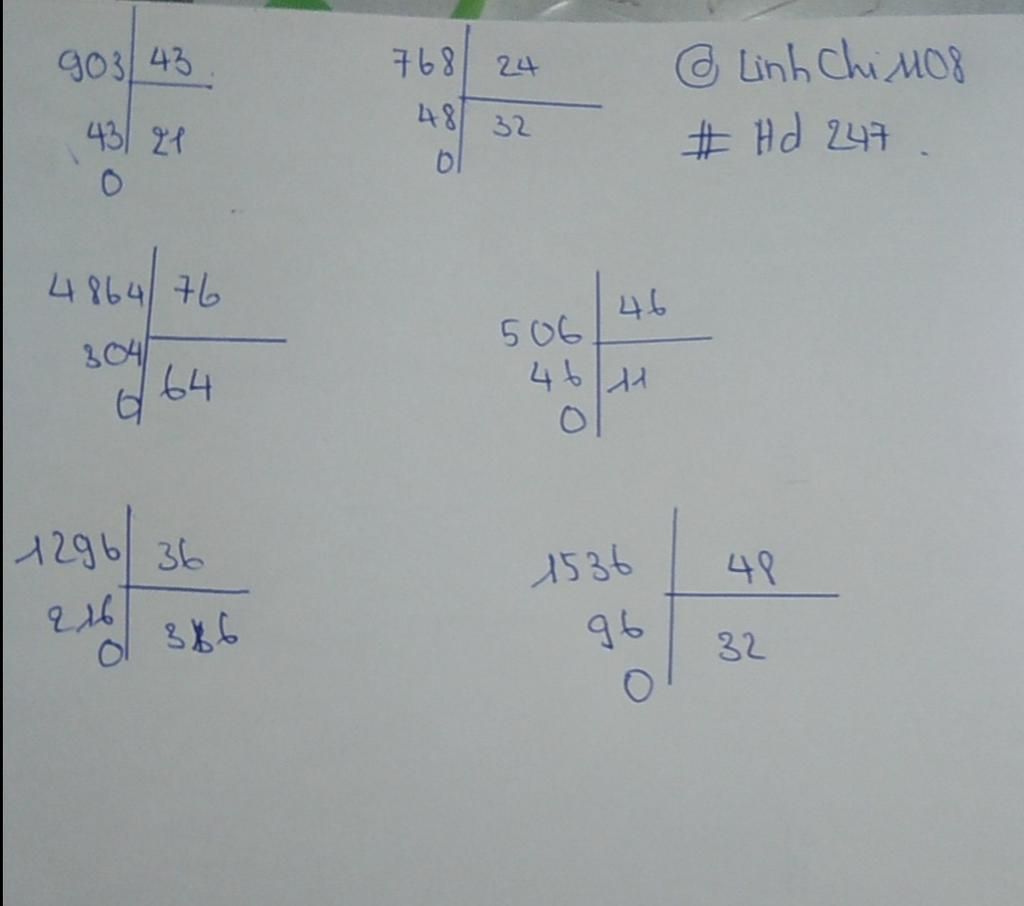 903 43
43 21
0
768 24
48 32
0
@ LinhChi1108
# Hd 247.
4864 76
304 64
0
506 46
46 11
0
1296 36
216 36
0
1536 48
96 32
0